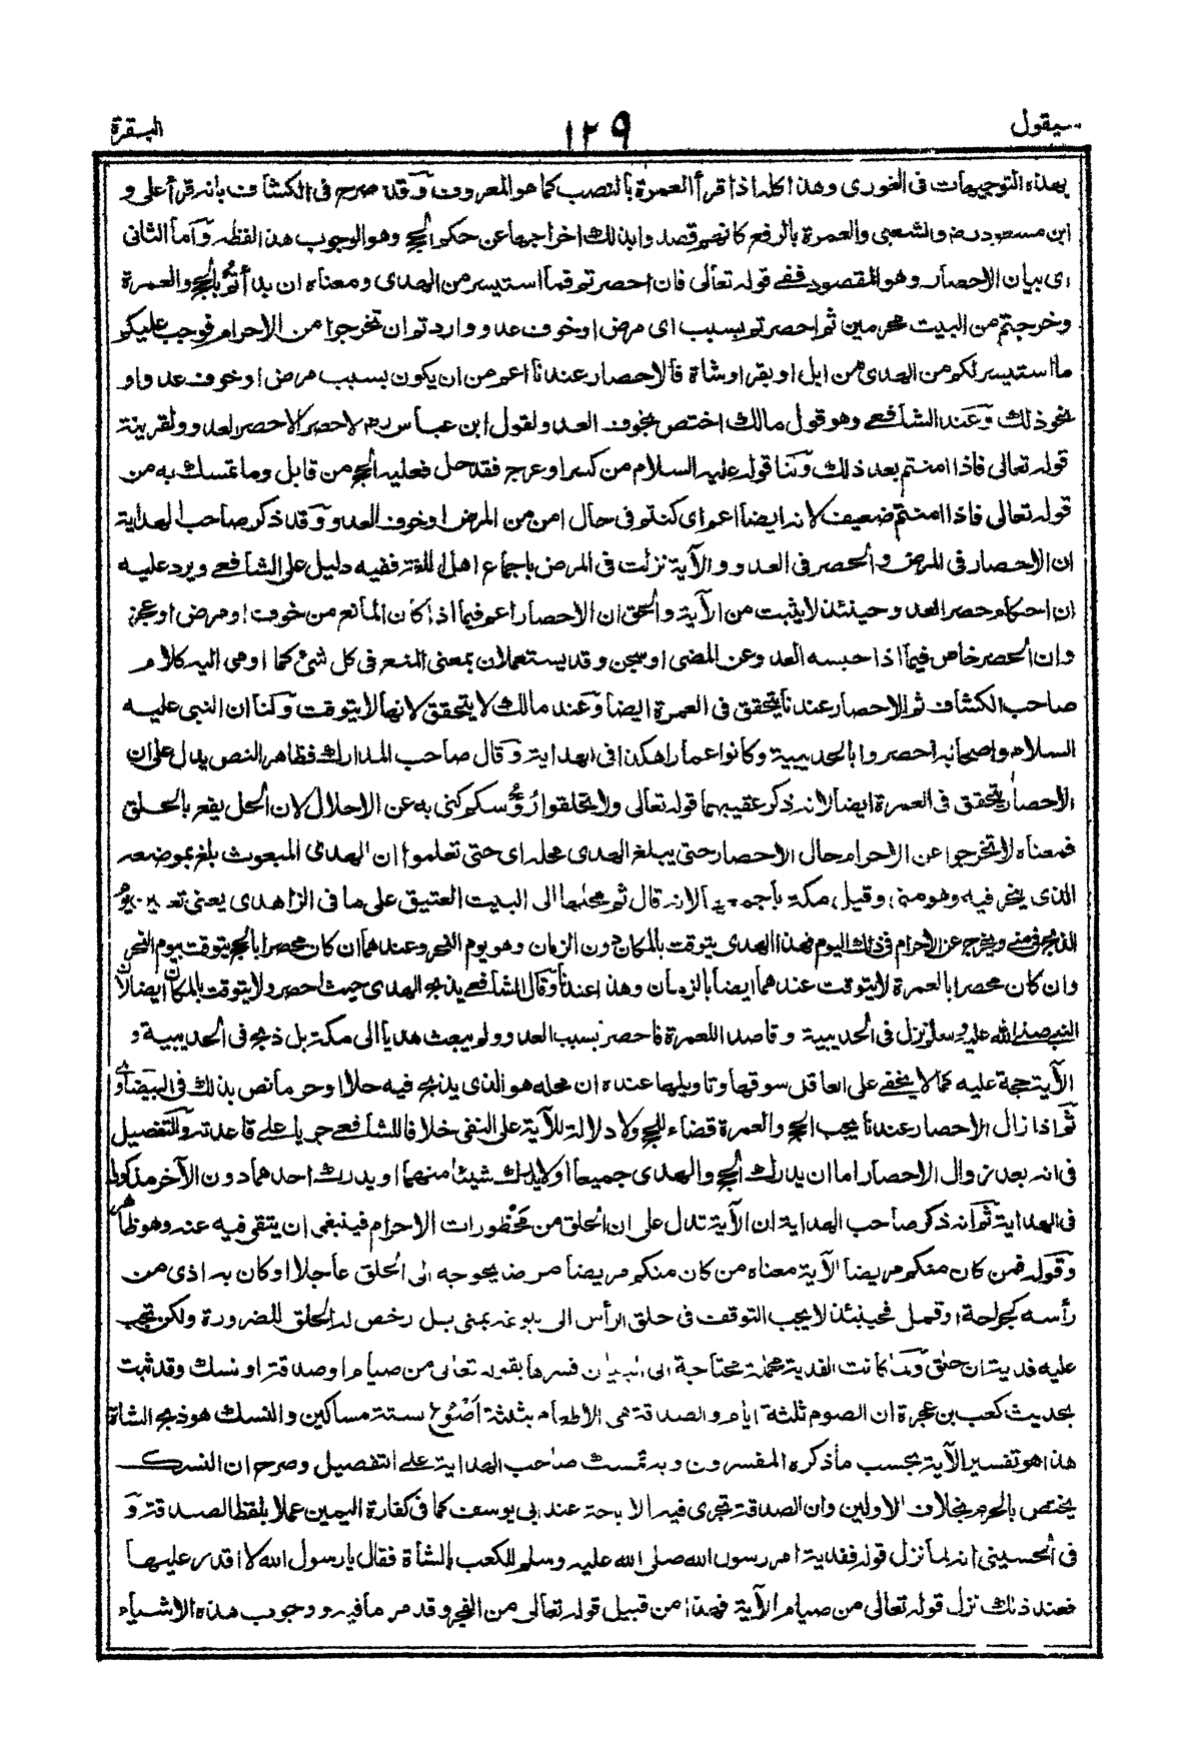 سيقول
١٢٩
البقرة
بهذه التوجيهات فى الغورى وهذا كله اذا قرأ العمرة بالنصب كما هو المعروف وقد صرح فى الكشاف بانه قرأ على و
ابن مسعود رض والشعبى والعمرة بالرفع كانهم قصدوا بذلك اخراجها عن حكم الحج وهو الوجوب هذا لفظه وآما الثانى
اى بيان الاحصار وهو المقصود ففى قوله تعالى فان احصرتم فما استيسر من الهدى ومعناه ان بدأتم بالحج والعمرة
وخرجتم من البيت محرمين ثم احصرتم بسبب اى مرض او خوف عدو واردتم ان تخرجوا من الاحرام فوجب عليكم
ما استيسر لكم من الهدى من ابل او بقر او شاة فالاحصار عندنا اعم من ان يكون بسبب مرض او خوف عدو او
نحو ذلك وعند الشافعے وهو قول مالك اختص بخوف العدو لقول ابن عباس رض لا حصر الا حصر العدو ولقرينة
قوله تعالى فاذا امنتم بعد ذلك ولنا قوله عليه السلام من كسر او عرج فقد حل فعليه الحج من قابل وما تمسك به من
قوله تعالى فاذا امنتم ضعيف لانه ايضا اعم اى كنتم فى حال امن من المرض او خوف العدو وقد ذكر صاحب الهداية
ان الاحصار فى المرض والحصر فى العدو والآية نزلت فى المرض باجماع اهل اللغة ففيه دليل على الشافعے ويرد عليه
ان احكام حصر العدو حينئذ لا يثبت من الآية والحق ان الاحصار اعم فيما اذا كان المانع من خوف او مرض او عجز
وان الحصر خاص فيما اذا حبسه العدو عن المضى او سجن وقد يستعملان بمعنى المنع فى كل شئ كما اومى اليه كلام
صاحب الكشاف ثم الاحصار عندنا يتحقق فى العمرة ايضا وعند مالك لا يتحقق لانها لا يتوقت ولنا ان النبى عليه
السلام واصحابه احصروا بالحديبية وكانوا عمارا هكذا فى الهداية وقال صاحب المدارك فظاهر النص يدل على ان
الاحصار يتحقق فى العمرة ايضا لانه ذكر عقيبهما قوله تعالى ولا تحلقوا رؤسكم كنى به عن الاحلال لان الحل يقع بالحلق
فمعناه لا تخرجوا عن الاحرام حال الاحصار حتى يبلغ الهدى محله اى حتى تعلموا ان الهدى المبعوث بلغ بموضعه
الذى ينحر فيه وهو منى وقيل مكة باجمعها لانه قال ثم محلها الى البيت العتيق على ما فى الزاهدى يعنى تعيين يوم
الذبح فى منى ويخرج عن الاحرام فى ذلك اليوم فهذا الهدى يتوقت بالمكان دون الزمان وهو يوم النحر وعندهما ان كان محصرا بالحج يتوقت بيوم النحر
وان كان محصرا بالعمرة لا يتوقت عندهما ايضا بالزمان وهذا عندنا وقال الشافعے يذبح الهدى حيث احصر ولا يتوقت بالمكان ايضا لان
النبى صلے الله عليه وسلم نزل فى الحديبية وقاصدا للعمرة فاحصر بسبب العدو ولم يبعث هديا الى مكة بل ذبح فى الحديبية و
الآية حجة عليه كما لا يخفے على العاقل سوقها وتاويلها عنده ان محله هو الذى يذبح فيه حلا او حرما نص بذلك فى البيضاوے
ثم اذا زال الاحصار عندنا يجب الحج والعمرة قضاء للحج ولا دلالة للآية على النفى خلافا للشافعے جريا علے قاعدته والتفصيل
فى انه بعد زوال الاحصار اما ان يدرك الحج والهدى جميعا او لا يدرك شيئا منهما او يدرك احدهما دون الآخر مذكور
فى الهداية ثم انه ذكر صاحب الهداية ان الآية تدل على ان الحلق من محظورات الاحرام فينبغى ان يتقى فيه عنه وهو ظاهر
وقوله فمن كان منكم مريضا الآية معناه من كان منكم مريضا مرضا يحوجه الى الحلق عاجلا او كان به اذى من
رأسه كجراحة او قمل فحينئذ لا يجب التوقف فى حلق الرأس الى بلوغه بمنى بل رخص له الحلق للضرورة ولكن تجب
عليه فدية ان حلق ولما كانت الفدية مجملة محتاجة الى البيان فسرها بقوله تعالى من صيام او صدقة او نسك وقد ثبت
بحديث كعب بن عجرة ان الصوم ثلثة ايام والصدقة هى الاطعام بثلثة أصْوُع ستة مساكين والنسك هو ذبح الشاة
هذا هو تفسير الآية بحسب ما ذكره المفسرون وبه تمسك صاحب الهداية علے التفصيل وصرح ان النسك
يختص بالحرم بخلاف الاولين وان الصدقة تجرى فيه الاباحة عند ابى يوسف كما فى كفارة اليمين عملا بلفظ الصدقة و
فى الحسينى انه لما نزل قوله ففدية امر رسول الله صلى الله عليه وسلم للكعب بالشاة فقال يا رسول الله لا اقدر عليها
فعند ذلك نزل قوله تعالى من صيام الآية فهذا من قبيل قوله تعالى من الفجر وقد مر ما فيه ووجوب هذه الاشياء